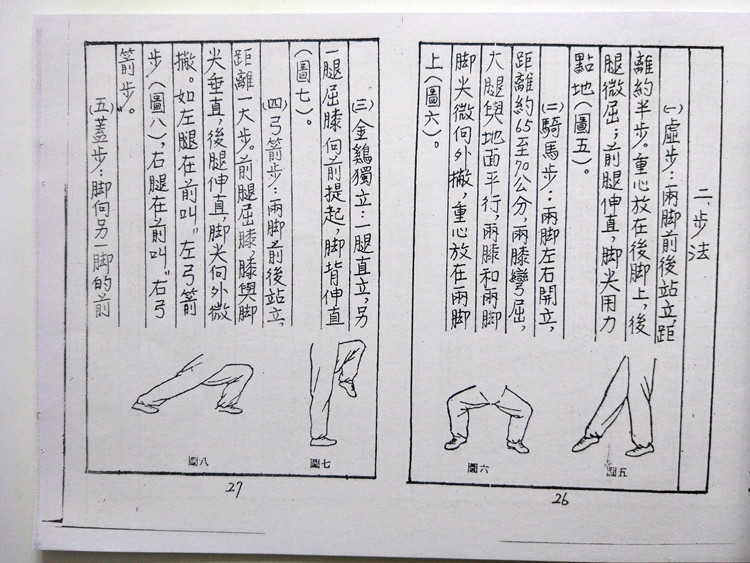 二、步法
(一)虛步:兩脚前後站立,距
離約半步。重心放在後脚上,後
腿微屈;前腿伸直,脚尖用力
點地(圖五)。
(二)騎馬步:兩脚左右開立,
距離約65至70公分,兩膝彎屈,
大腿與地面平行,兩膝和兩脚
脚尖微向外撇,重心放在兩脚
上(圖六)。
圖五
圖六
26
(三)金鷄獨立:一腿直立,另
一腿屈膝向前提起,脚背伸直
(圖七)。
(四)弓箭步:兩脚前後站立,
距離一大步。前腿屈膝,膝與脚
尖垂直,後腿伸直,脚尖向外微
撇。如左腿在前叫"左弓箭
步(圖八),右腿在前叫"右弓
箭步。
(五)蓋步:脚向另一脚的前
圖七
圖八
27